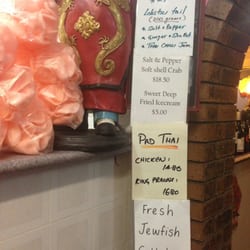 Lobster tail
(200 gram)
* Salt + Pepper
* Ginger + Shallot
Salt & Pepper
Soft shell Crab
$18.50
Sweet Deep
Fried Icecream
$5.00
PAD THAI
CHICKEN:
14-80
KING PRAWN:
16-80
Fresh
Jewfish